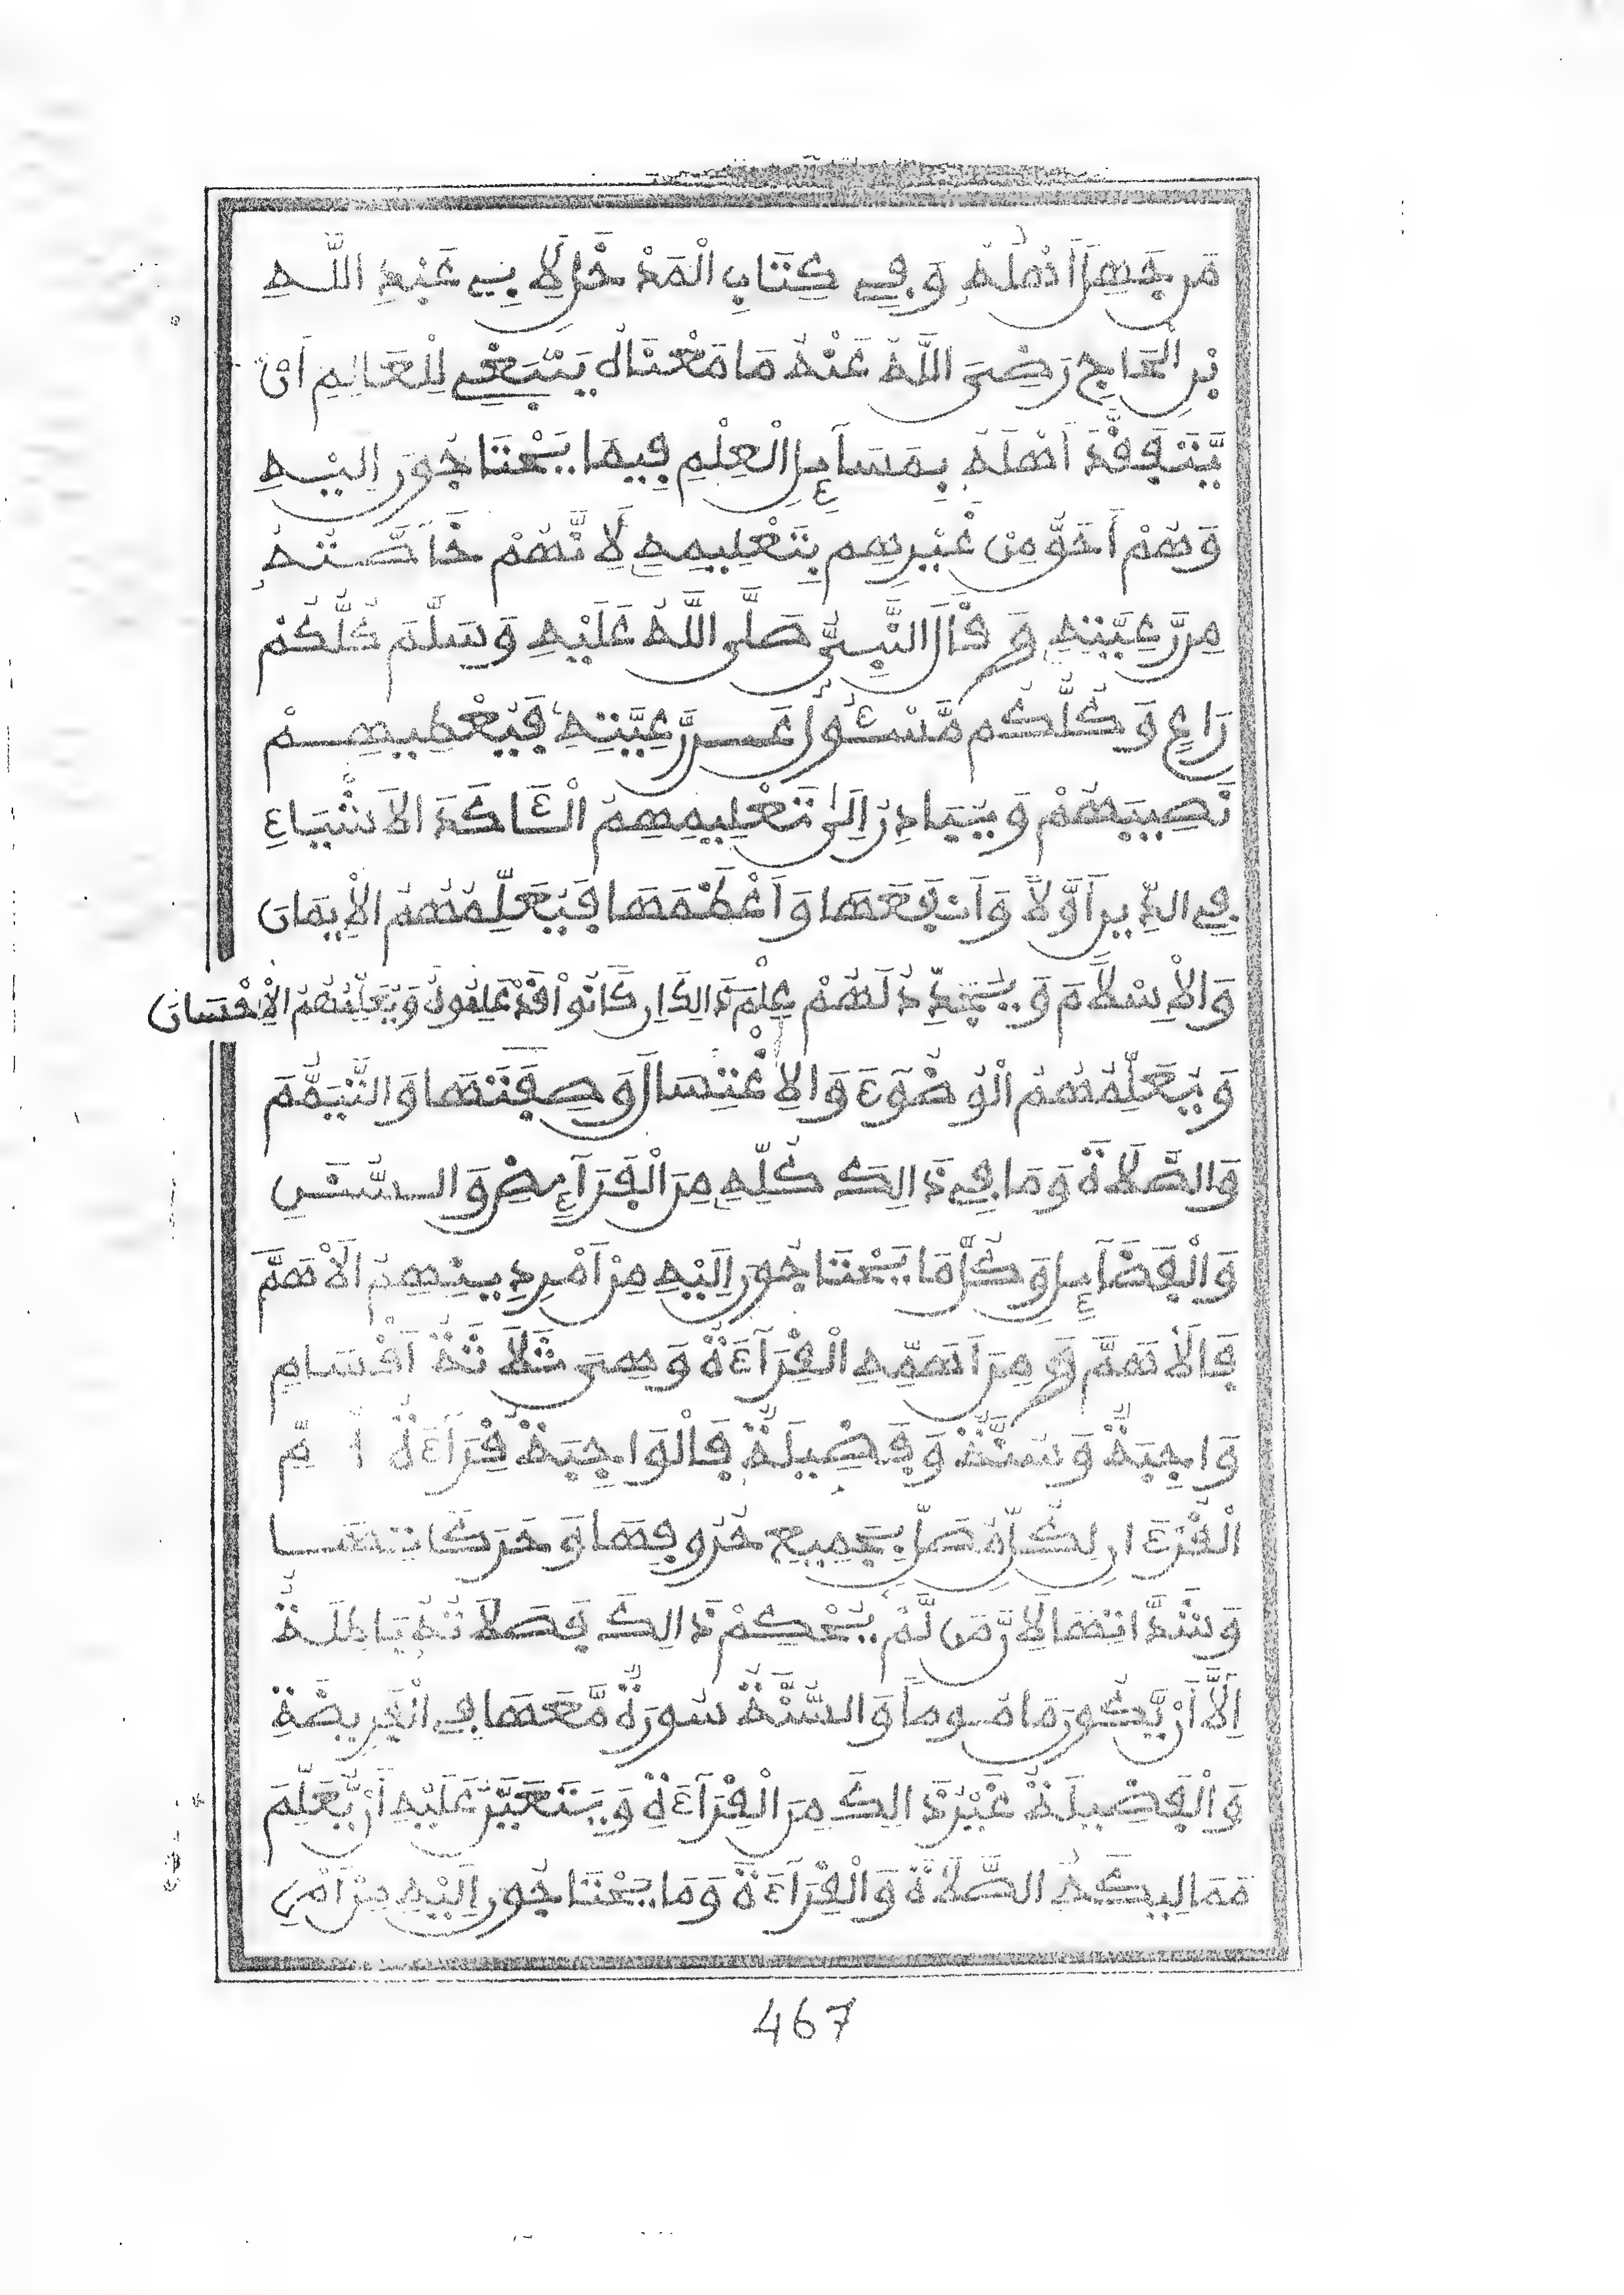 مَن جَهِلَ أَهْلُهُ وَفِي كِتَابِ الْمَدْخَلِ لِأَبِي عَبْدِ اللَّهِ
بْنِ الْحَاجِ رَضِيَ اللَّهُ عَنْهُ مَا مَعْنَاهُ يَنْبَغِي لِلْعَالِمِ أَنْ
يَّتَفَقَّدَ أَهْلَهُ بِمَسَآئِلِ الْعِلْمِ فِيمَا يَحْتَاجُونَ إِلَيْهِ
وَهُمْ أَحَقُّ مِنْ غَيْرِهِم بِتَعْلِيمِهِ لِأَنَّهُمْ خَآصَّتُهُ
مِن رَّعِيَّتِهِ وَقَالَ النَّبِيُّ صَلَّى اللَّهُ عَلَيْهِ وَسَلَّمَ كُلُّكُمْ
رَاعٍ وَكُلُّكُم مَّسْئُولٌ عَن رَّعِيَّتِهِ فَيُعْطِيهِمْ
نَصِيبَهُمْ وَيُبَادِرُ إِلَى تَعْلِيمِهِمُ الْئَاكَدَ الْأَشْيَاءِ
فِي الدِّينِ أَوَّلًا وَأَنفَعَهَا وَأَعْظَمَهَا فَيُعَلِّمُهُمُ الْإِيمَانَ
وَالْإِسْلَامَ وَيُجَدِّدُ لَهُمْ عِلْمَ ذَالِكَ إِن كَانُوا قَدْ عَلِمُوهُ وَيُعَلِّمُهُمُ الْإِحْسَانَ
وَيُعَلِّمُهُمُ الْوُضُوءَ وَالْإِغْتِسَالَ وَصِفَتَهَا وَالتَّيَمُّمَ
وَالصَّلَاةَ وَمَا فِي ذَالِكَ كُلِّهِ مِنَ الْفَرَآئِضِ وَالسُّنَنِ
وَالْفَضَآئِلِ وَكُلَّ مَا يَحْتَاجُونَ إِلَيْهِ مِنْ أَمْرِ دِينِهِمُ الْأَهَمَّ
فَالْأَهَمَّ وَمِنَ أَهَمِّهِ الْقِرَآءَةُ وَهِيَ ثَلَاثَةُ أَقْسَامٍ
وَاجِبَةٌ وَسُنَّةٌ وَفَضِيلَةٌ فَالْوَاجِبَةُ قِرَآءَةُ أُمِّ
الْقُرْءَانِ لِكُلِّ مُصَلٍّ بِجَمِيعِ حُرُوفِهَا وَحَرَكَاتِهَا
وَشَدَّاتِهَا لِأَنَّ مَن لَّمْ يُحْكِمْ ذَالِكَ فَصَلَاتُهُ بَاطِلَةٌ
إِلَّا أَنْ يَّكُونَ مَامُومًا وَالسُّنَّةُ سُورَةٌ مَّعَهَا فِي الْفَرِيضَةِ
وَالْفَضِيلَةُ غَيْرُ ذَالِكَ مِنَ الْقِرَآءَةِ وَيَتَعَيَّنُ عَلَيْهِ أَنْ يُّعَلِّمَ
مَمَالِيكَهُ الصَّلَاةَ وَالْقِرَآءَةَ وَمَا يَحْتَاجُونَ إِلَيْهِ مِنْ أَمْرِ
467